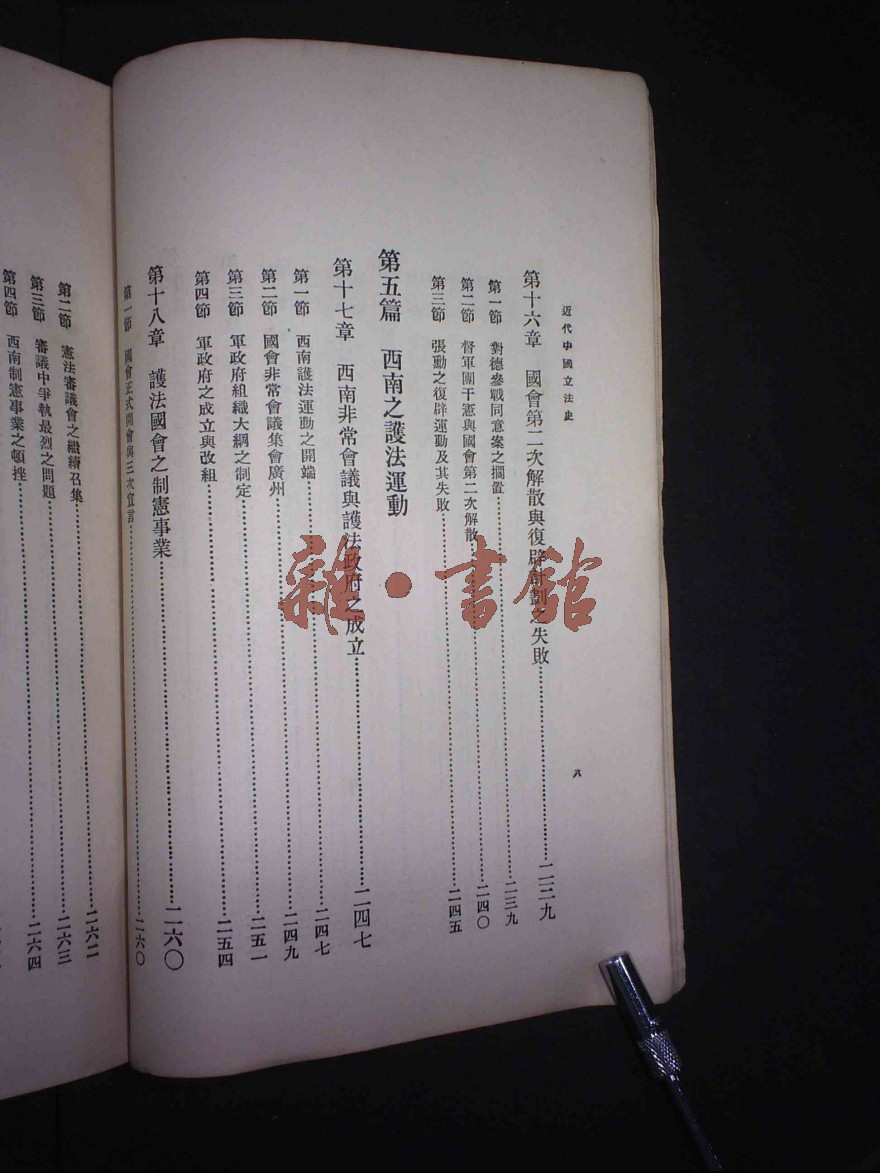 近代中國立法史
八
第十六章　國會第二次解散與復辟計劃之失敗……二三九
第一節　對德參戰同意案之擱置……二三九
第二節　督軍團干憲與國會第二次解散……二四〇
第三節　張勳之復辟運動及其失敗……二四五
第五篇　西南之護法運動
第十七章　西南非常會議與護法政府之成立……二四七
第一節　西南護法運動之開端……二四七
第二節　國會非常會議集會廣州……二四九
第三節　軍政府組織大綱之制定……二五一
第四節　軍政府之成立與改組……二五四
第十八章　護法國會之制憲事業……二六〇
第一節　國會正式開會與三次宣言……二六〇
第二節　憲法審議會之繼續召集……二六二
第三節　審議中爭執最烈之問題……二六三
第四節　西南制憲事業之頓挫……二六四
雜·書館